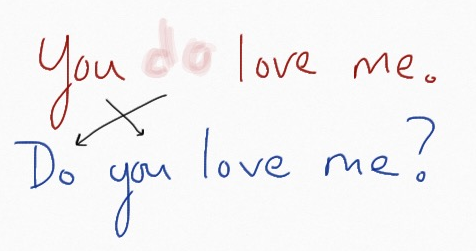 You do love me.
Do you love me?